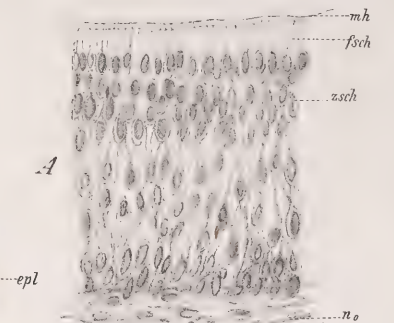 mh
fsch
zsch
A
epl
no